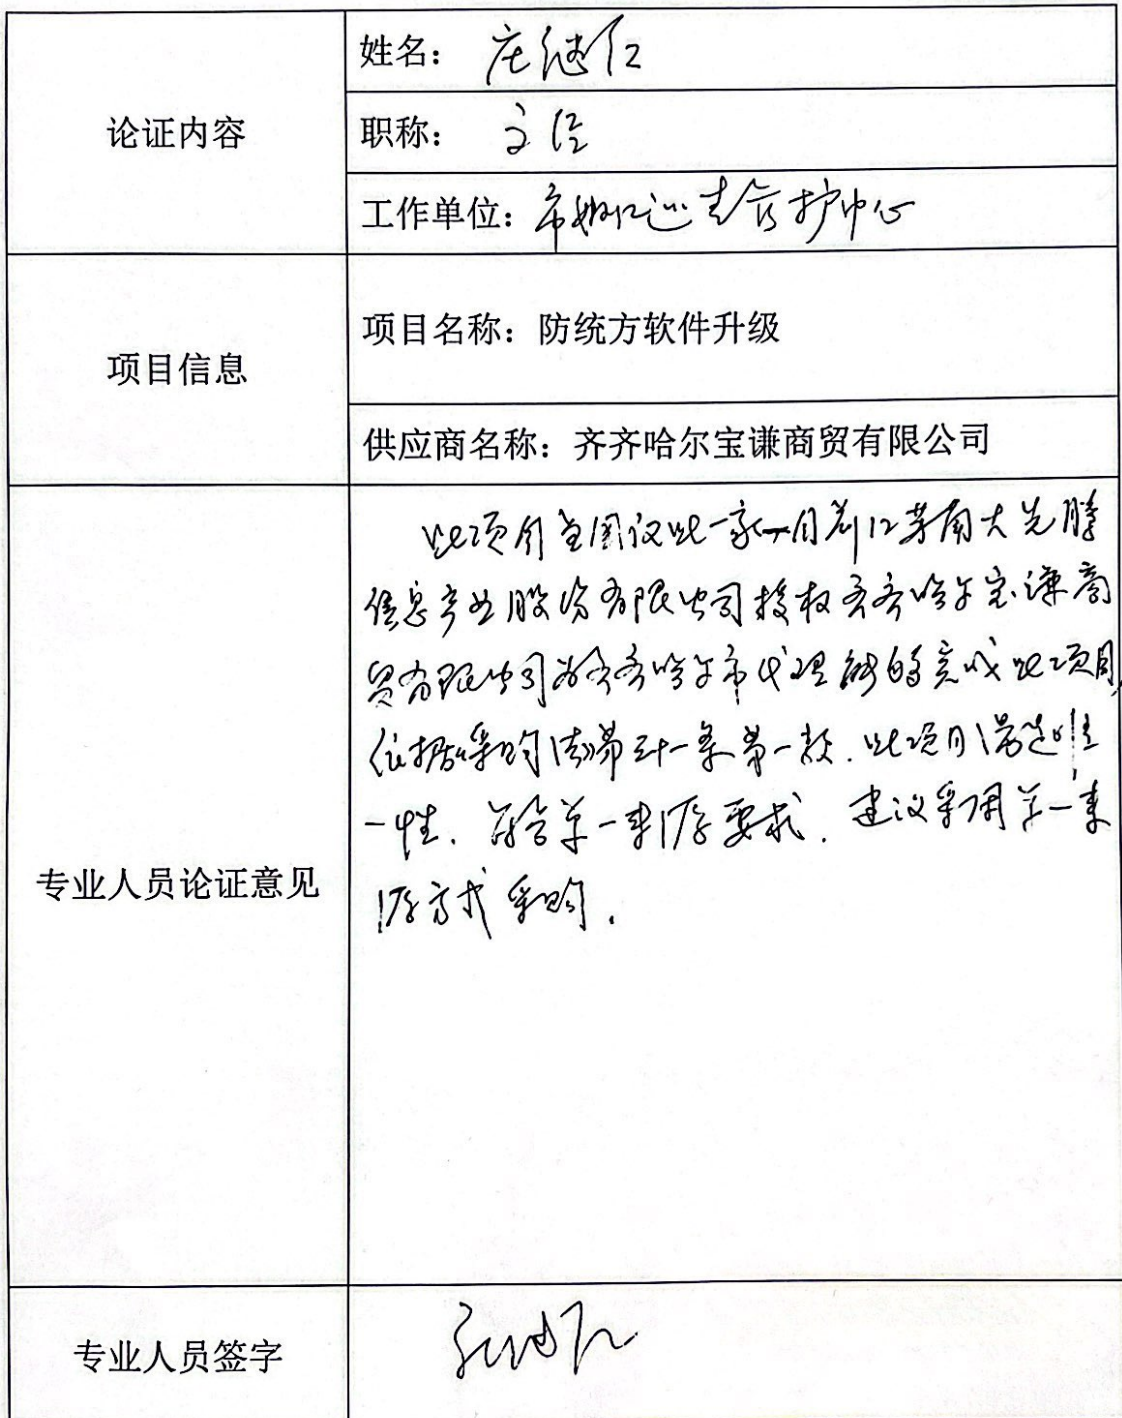 论证内容
姓名：庄继仁
职称：主任
工作单位：市妇保计生服护中心
项目信息
项目名称：防统方软件升级
供应商名称：齐齐哈尔宝谦商贸有限公司
专业人员论证意见
此项目全国仅此一家，目前江苏南大先腾
信息产业股份有限公司授权齐齐哈尔宝谦商
贸有限公司为齐齐哈尔市代理能够完成此项目，
依据《采购法》第三十一条第一款．此项目满足唯
一性．符合单一来源要求．建议采用单一来
源方式采购．
专业人员签字